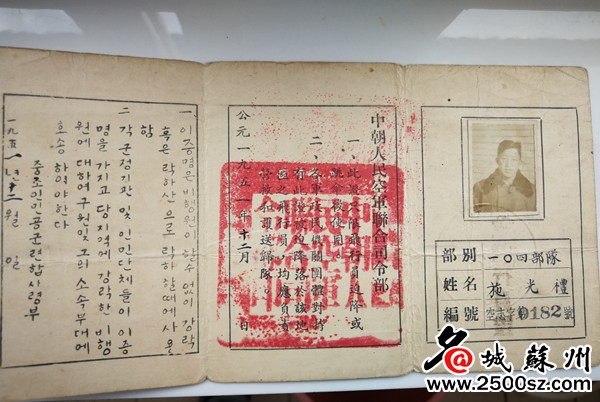 部別 一〇四部隊
姓名 施光禮
編號 空 字第0182號
中朝人民空軍聯合司令部
一、此證只限飛行員迫降或
跳傘後使用。
二、各軍政民機關團體對持
有此證被迫降落於該地
區之飛行員，均應負責
營救 送歸隊。
公元一九五一年十二月 日
一 이 증명은 비행원이 할수 없이 강락
혹은 락하산으로 락하 할때에 사용
함
二 각 군정기관 및 인민단체들이 이 증
명을 가지고 당지역에 강락한 비행
원에 대하여 구원 및 그의 소속부대에
호송 하여야 한다
중조인민공군련합사령부
一九五一年十二월 일
名城蘇州
www.2500sz.com